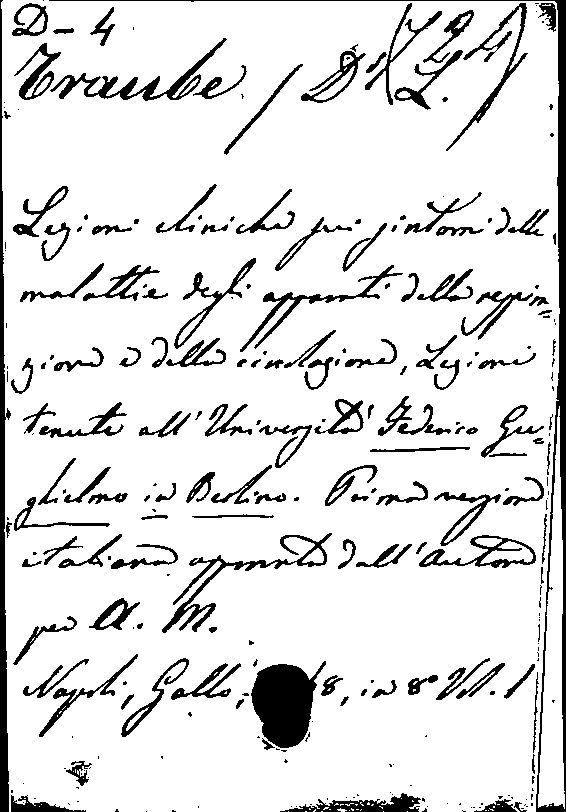 D-4
(724)
Traube / Dr L.
Lezioni cliniche sui sintomi delle
malattie degli apparati della respira=
zione e della circolazione, Lezioni
tenute all'Università Federico Gu=
glielmo in Berlino. Prima versione
italiana approvata dall'Autore
per A. M.
Napoli, Gallo, 8, in 8º Vol. 1